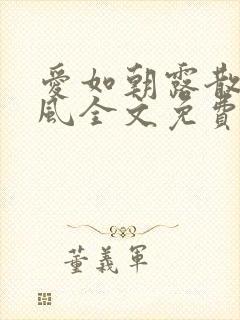 愛如朝露散
風全文免費
董義軍